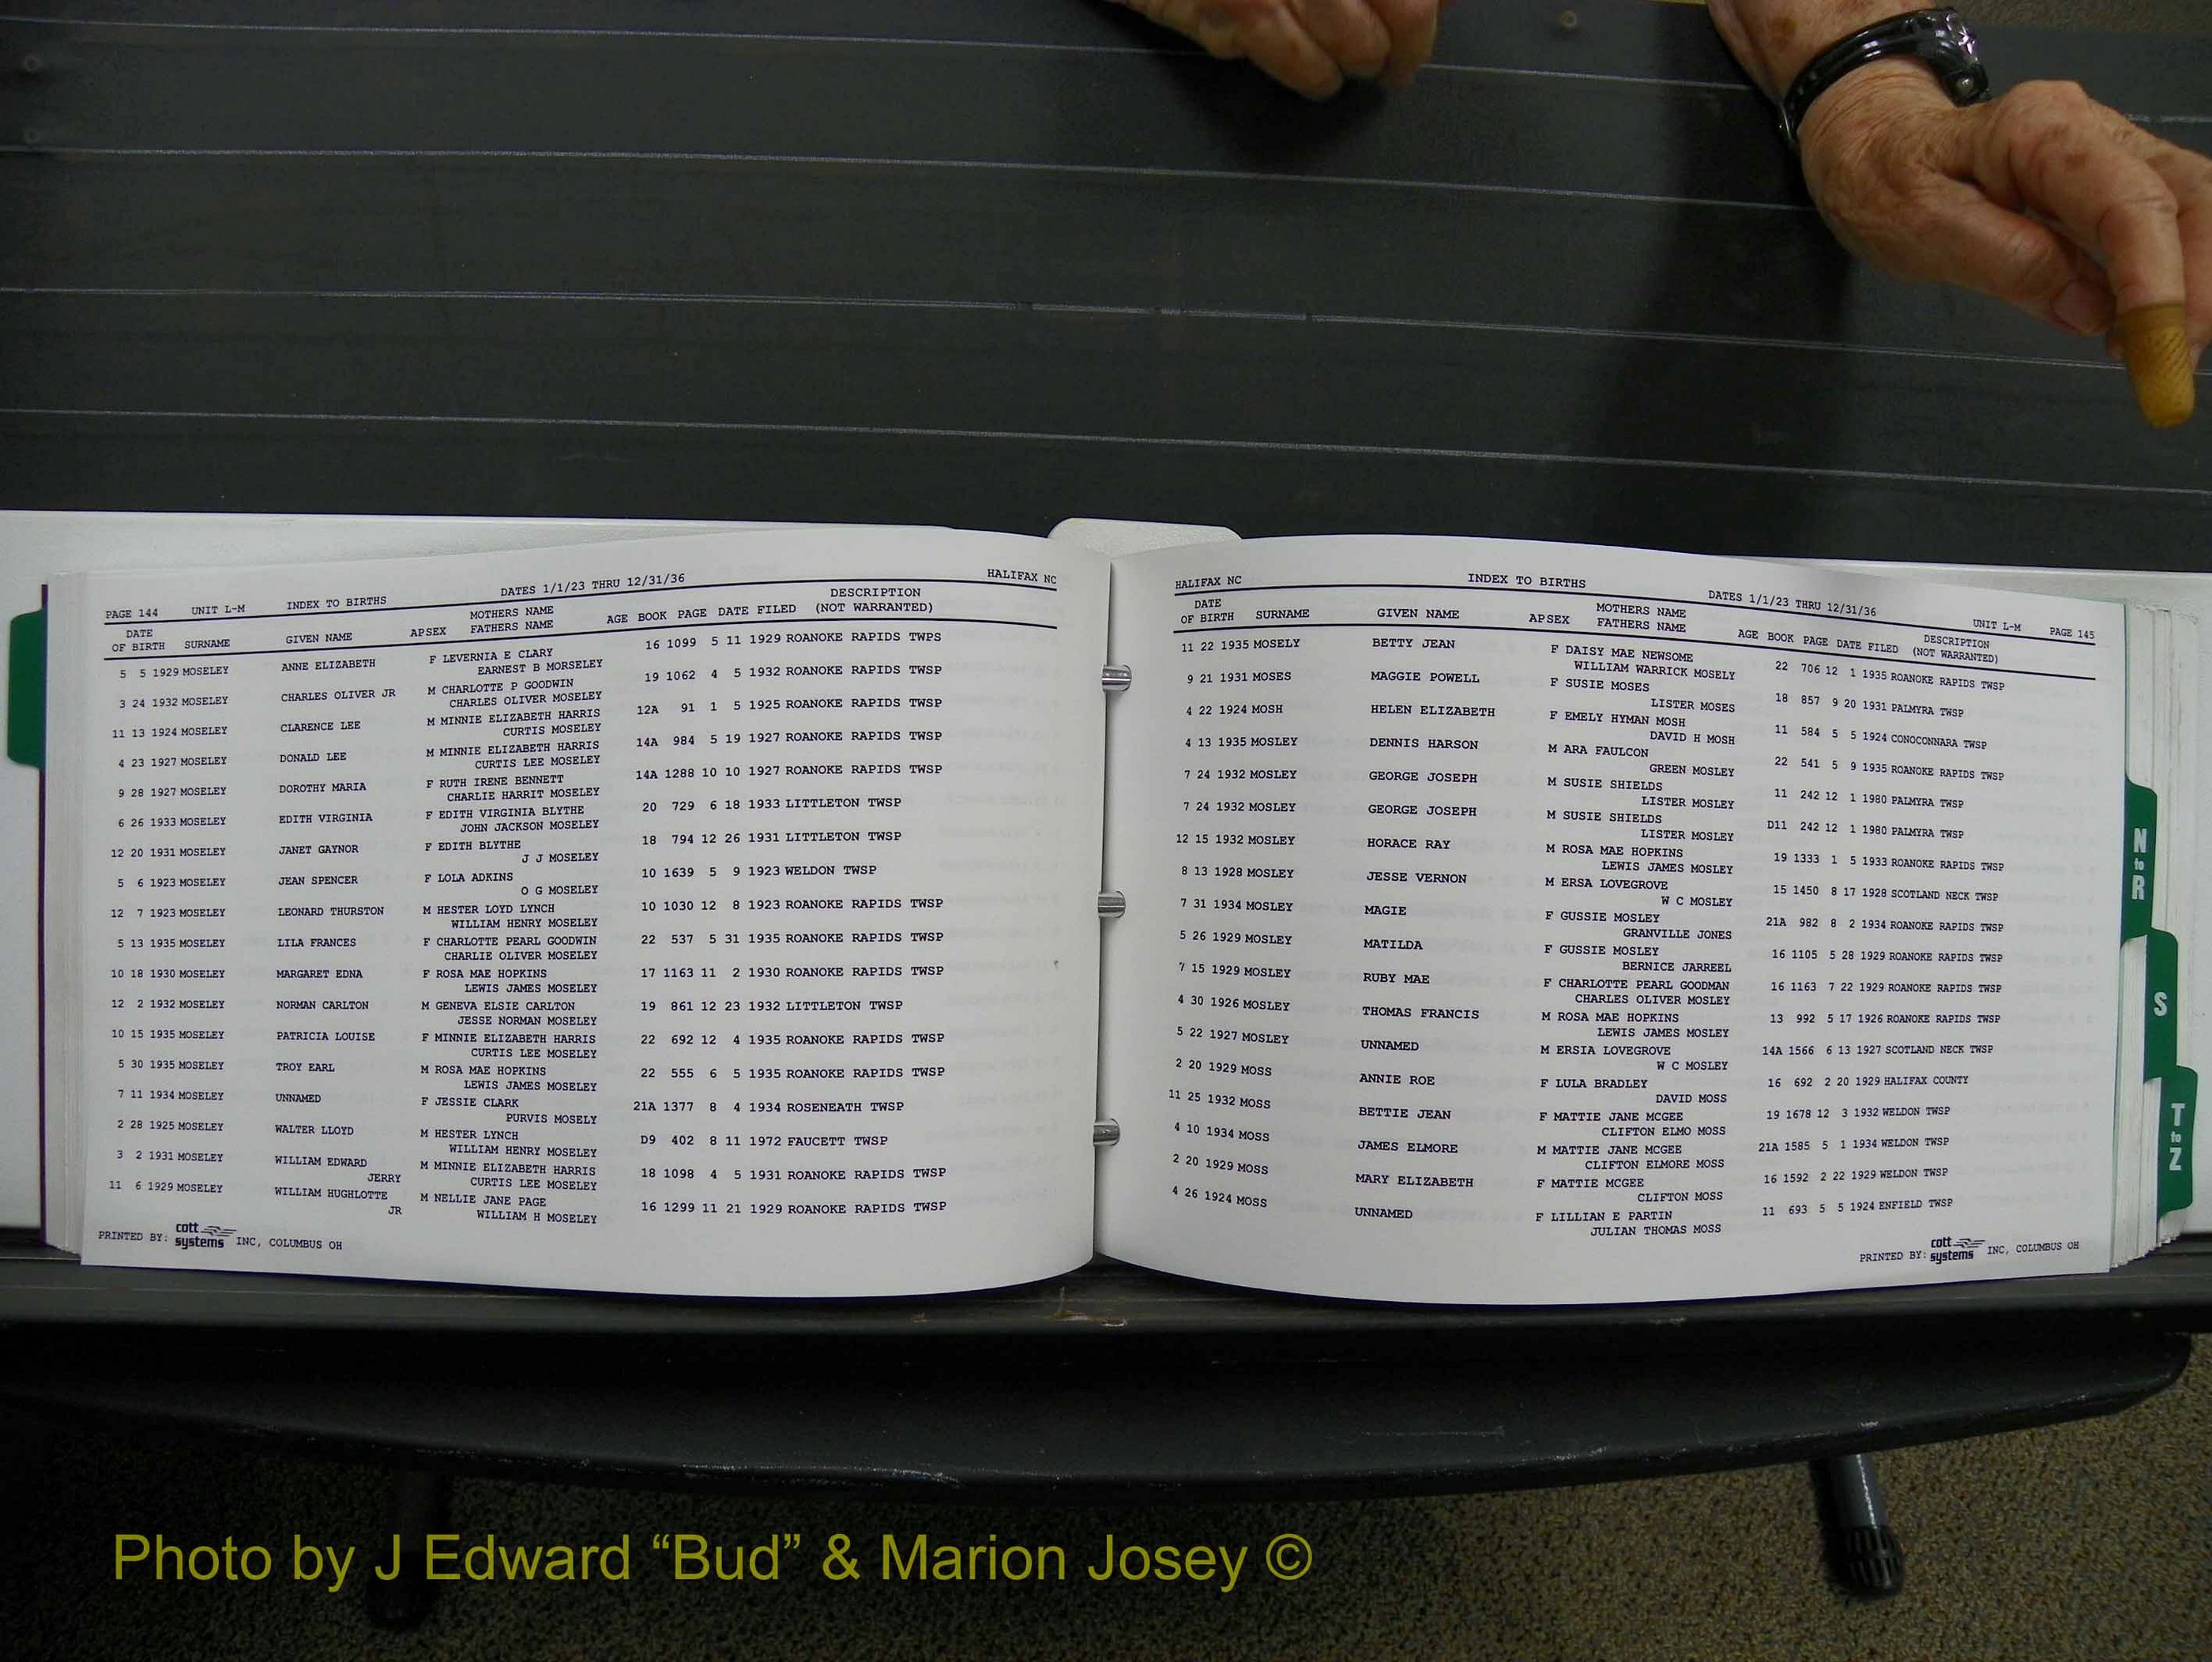 PAGE 144 UNIT L-M INDEX TO BIRTHS DATES 1/1/23 THRU 12/31/36 HALIFAX NC
DATE OF BIRTH SURNAME GIVEN NAME APSEX MOTHERS NAME FATHERS NAME AGE BOOK PAGE DATE FILED DESCRIPTION (NOT WARRANTED)
5 5 1929 MOSELEY ANNE ELIZABETH F LEVERNIA E CLARY 16 1099 5 11 1929 ROANOKE RAPIDS TWPS
EARNEST B MORSELEY
3 24 1932 MOSELEY CHARLES OLIVER JR M CHARLOTTE P GOODWIN 19 1062 4 5 1932 ROANOKE RAPIDS TWSP
CHARLES OLIVER MOSELEY
11 13 1924 MOSELEY CLARENCE LEE M MINNIE ELIZABETH HARRIS 12A 91 1 5 1925 ROANOKE RAPIDS TWSP
CURTIS MOSELEY
4 23 1927 MOSELEY DONALD LEE M MINNIE ELIZABETH HARRIS 14A 984 5 19 1927 ROANOKE RAPIDS TWSP
CURTIS LEE MOSELEY
9 28 1927 MOSELEY DOROTHY MARIA F RUTH IRENE BENNETT 14A 1288 10 10 1927 ROANOKE RAPIDS TWSP
CHARLIE HARRIT MOSELEY
6 26 1933 MOSELEY EDITH VIRGINIA F EDITH VIRGINIA BLYTHE 20 729 6 18 1933 LITTLETON TWSP
JOHN JACKSON MOSELEY
12 20 1931 MOSELEY JANET GAYNOR F EDITH BLYTHE 18 794 12 26 1931 LITTLETON TWSP
J J MOSELEY
5 6 1923 MOSELEY JEAN SPENCER F LOLA ADKINS 10 1639 5 9 1923 WELDON TWSP
O G MOSELEY
12 7 1923 MOSELEY LEONARD THURSTON M HESTER LOYD LYNCH 10 1030 12 8 1923 ROANOKE RAPIDS TWSP
WILLIAM HENRY MOSELEY
5 13 1935 MOSELEY LILA FRANCES F CHARLOTTE PEARL GOODWIN 22 537 5 31 1935 ROANOKE RAPIDS TWSP
CHARLIE OLIVER MOSELEY
10 18 1930 MOSELEY MARGARET EDNA F ROSA MAE HOPKINS 17 1163 11 2 1930 ROANOKE RAPIDS TWSP
LEWIS JAMES MOSELEY
12 2 1932 MOSELEY NORMAN CARLTON M GENEVA ELSIE CARLTON 19 861 12 23 1932 LITTLETON TWSP
JESSE NORMAN MOSELEY
10 15 1935 MOSELEY PATRICIA LOUISE F MINNIE ELIZABETH HARRIS 22 692 12 4 1935 ROANOKE RAPIDS TWSP
CURTIS LEE MOSELEY
5 30 1935 MOSELEY TROY EARL M ROSA MAE HOPKINS 22 555 6 5 1935 ROANOKE RAPIDS TWSP
LEWIS JAMES MOSELEY
7 11 1934 MOSELEY UNNAMED F JESSIE CLARK 21A 1377 8 4 1934 ROSENEATH TWSP
PURVIS MOSELY
2 28 1925 MOSELEY WALTER LLOYD M HESTER LYNCH D9 402 8 11 1972 FAUCETT TWSP
WILLIAM HENRY MOSELEY
3 2 1931 MOSELEY WILLIAM EDWARD M MINNIE ELIZABETH HARRIS 18 1098 4 5 1931 ROANOKE RAPIDS TWSP
JERRY CURTIS LEE MOSELEY
11 6 1929 MOSELEY WILLIAM HUGHLOTTE M NELLIE JANE PAGE 16 1299 11 21 1929 ROANOKE RAPIDS TWSP
JR WILLIAM H MOSELEY
PRINTED BY: cott systems INC, COLUMBUS OH
HALIFAX NC INDEX TO BIRTHS DATES 1/1/23 THRU 12/31/36 UNIT L-M PAGE 145
DATE OF BIRTH SURNAME GIVEN NAME APSEX MOTHERS NAME FATHERS NAME AGE BOOK PAGE DATE FILED DESCRIPTION (NOT WARRANTED)
11 22 1935 MOSELY BETTY JEAN F DAISY MAE NEWSOME 22 706 12 1 1935 ROANOKE RAPIDS TWSP
WILLIAM WARRICK MOSELY
9 21 1931 MOSES MAGGIE POWELL F SUSIE MOSES 18 857 9 20 1931 PALMYRA TWSP
LISTER MOSES
4 22 1924 MOSH HELEN ELIZABETH F EMELY HYMAN MOSH 11 584 5 5 1924 CONOCONNARA TWSP
DAVID H MOSH
4 13 1935 MOSLEY DENNIS HARSON M ARA FAULCON 22 541 5 9 1935 ROANOKE RAPIDS TWSP
GREEN MOSLEY
7 24 1932 MOSLEY GEORGE JOSEPH M SUSIE SHIELDS 11 242 12 1 1980 PALMYRA TWSP
LISTER MOSLEY
7 24 1932 MOSLEY GEORGE JOSEPH M SUSIE SHIELDS D11 242 12 1 1980 PALMYRA TWSP
LISTER MOSLEY
12 15 1932 MOSLEY HORACE RAY M ROSA MAE HOPKINS 19 1333 1 5 1933 ROANOKE RAPIDS TWSP
LEWIS JAMES MOSLEY
8 13 1928 MOSLEY JESSE VERNON M ERSA LOVEGROVE 15 1450 8 17 1928 SCOTLAND NECK TWSP
W C MOSLEY
7 31 1934 MOSLEY MAGIE F GUSSIE MOSLEY 21A 982 8 2 1934 ROANOKE RAPIDS TWSP
GRANVILLE JONES
5 26 1929 MOSLEY MATILDA F GUSSIE MOSLEY 16 1105 5 28 1929 ROANOKE RAPIDS TWSP
BERNICE JARREEL
7 15 1929 MOSLEY RUBY MAE F CHARLOTTE PEARL GOODMAN 16 1163 7 22 1929 ROANOKE RAPIDS TWSP
CHARLES OLIVER MOSLEY
4 30 1926 MOSLEY THOMAS FRANCIS M ROSA MAE HOPKINS 13 992 5 17 1926 ROANOKE RAPIDS TWSP
LEWIS JAMES MOSLEY
5 22 1927 MOSLEY UNNAMED M ERSIA LOVEGROVE 14A 1566 6 13 1927 SCOTLAND NECK TWSP
W C MOSLEY
2 20 1929 MOSS ANNIE ROE F LULA BRADLEY 16 692 2 20 1929 HALIFAX COUNTY
DAVID MOSS
11 25 1932 MOSS BETTIE JEAN F MATTIE JANE MCGEE 19 1678 12 3 1932 WELDON TWSP
CLIFTON ELMO MOSS
4 10 1934 MOSS JAMES ELMORE M MATTIE JANE MCGEE 21A 1585 5 1 1934 WELDON TWSP
CLIFTON ELMORE MOSS
2 20 1929 MOSS MARY ELIZABETH F MATTIE MCGEE 16 1592 2 22 1929 WELDON TWSP
CLIFTON MOSS
4 26 1924 MOSS UNNAMED F LILLIAN E PARTIN 11 693 5 5 1924 ENFIELD TWSP
JULIAN THOMAS MOSS
PRINTED BY: cott systems INC, COLUMBUS OH
N to R
S
T to Z
Photo by J Edward “Bud” & Marion Josey ©